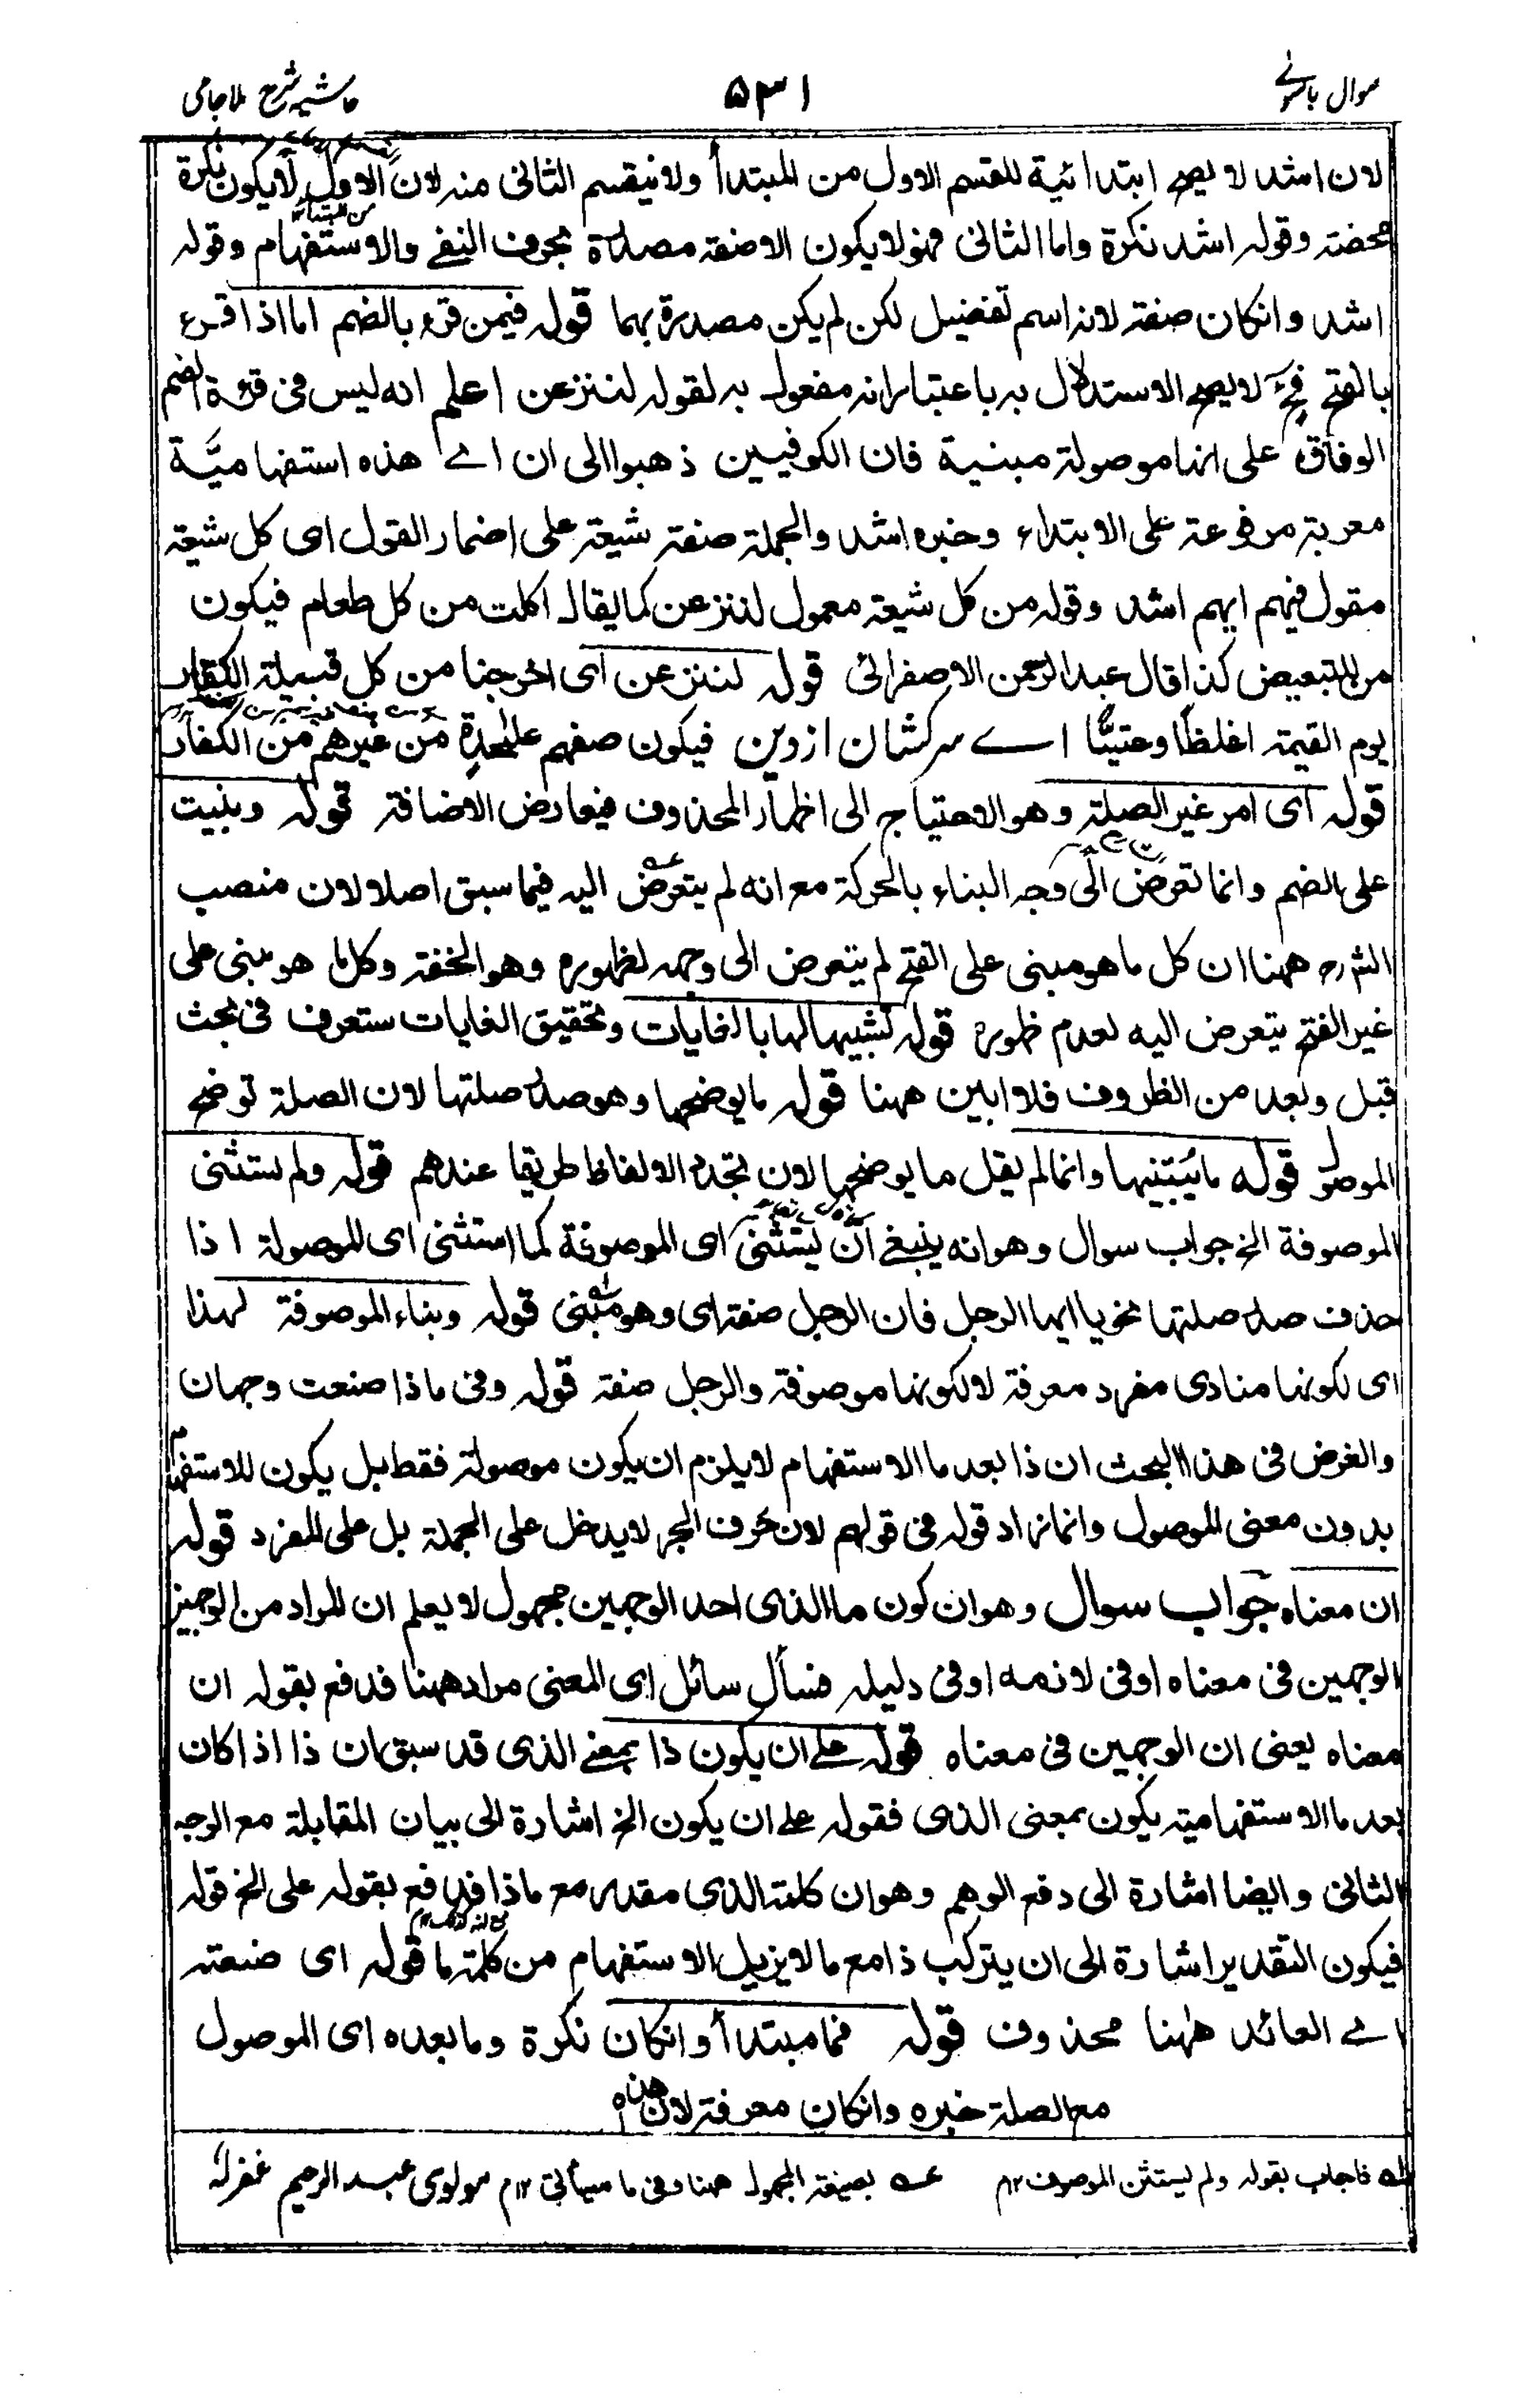 سوال باسولے ۵۳۱ حاشیہ شرح ملا جامی
لان اشد لا یصح ابتدائیة للقسم الاول من المبتدأ ولا نیقسم الثانی منہ لان الاول لا یکون نکرة
محضة وقولہ اشد نکرة واما الثانی فہو لا یکون الا صفة مصدرة بحرف النفے والاستفہام وقولہ
من المبتدأ
اشد وانکان صفة لانہ اسم تفضیل لکن لم یکن مصدرة بہما قولہ فیمن قرء بالضم اما اذا قرء
بالفتح فح لا یصح الاستدلال بہ باعتبار انہ مفعول بہ لقولہ لننزعن اعلم انہ لیس فی قرءة الضم
الوفاق علی انہا موصولة مبنیة فان الکوفیین ذہبوا الی ان اے ھذہ استفہامیّة
معربة مرفوعة علی الابتداء وخبرہ اشد والجملة صفة شیعة علی اضمار القول ای کل شیعة
مقول فیہم ایہم اشد وقولہ من کل شیعة معمول لننزعن کما یقال اکلت من کل طعام فیکون
من للتبعیض کذا قال عبد الرحمن الاصفرائی قولہ لننزعن ای اخرجنا من کل قبیلة الکفار
یوم القیمة اغلظا وعتیًّا اے سرکشان از دین فیکون صفہم علحدة من غیرھم من الکفار
قولہ ای امر غیر الصلة وھو الاحتیاج الی اظہار المحذوف فیعارض الاضافة قولہ وبنیت
علی الضم وانما تعرض الی وجہ البناء بالحرکة مع انہ لم یتعرض الیہ فیما سبق اصلا لان منصب
الشرح ھہنا ان کل ما ھو مبنی علی الفتح لم یتعرض الی وجہہ لظہورہ وھو الخفة وکل ما ھو مبنی علی
غیر الفتح یتعرض الیہ لعدم ظہورہ قولہ تشبیہا لہا بالغایات وتحقیق الغایات ستعرف فی بحث
قبل وبعد من الظروف فلا ابین ھہنا قولہ ما یوضحہا وھو صدر صلتہا لان الصلة توضح
الموصول قولہ ما یُبَیِّنہا وانما لم یقل ما یوضحہا لان تجدد الالفاظ طریقا عندھم قولہ ولم یستثنی
الموصوفة الخ جواب سوال وھو انہ ینبغے ان یستثنی ای الموصوفة کما استثنی ای الموصولة اذا
حذف صدر صلتہا نحو یا ایہا الرجل فان الرجل صفة ای وھو مبنی قولہ وبناء الموصوفة لہذا
ای لکونہا منادی مفرد معرفة لا لکونہا موصوفة والرجل صفة قولہ وفی ماذا صنعت وجہان
والغرض فی ھذا البحث ان ذا بعد ما الاستفہام لا یلزم ان یکون موصولة فقط بل یکون للاستفہام
بدون معنی الموصول وانما زاد قولہ فی قولہم لان حرف الجر لا یدخل علی الجملة بل علی المفرد قولہ
ان معناہ جواب سوال وھو ان کون ما الذی احد الوجہین مجہول لا یعلم ان المراد من الوجہین
الوجہین فی معناہ اوفی لازمہ اوفی دلیلہ فسأل سائل ای المعنی مراد ھہنا فدفع بقولہ ان
معناہ یعنی ان الوجہین فی معناہ قولہ علے ان یکون ذا بمعنے الذی قد سبق ان ذا اذا کان
بعد ما الاستفہامیة یکون بمعنی الذی فقولہ علے ان یکون الخ اشارة الی بیان المقابلة مع الوجہ
الثانی وایضا اشارة الی دفع الوھم وھو ان کلمة الذی مقدر مع ماذا فدفع بقولہ علی الخ قولہ
فیکون التقدیر اشارة الی ان یترکب ذا مع ما لا یزیل الاستفہام من کلمة ما قولہ ای صنعتہ
اے العائد ھٰہنا محذوف قولہ فما مبتدأ وانکان نکرة وما بعدہ ای الموصول
مع الصلة خبرہ وانکان معرفة لان ھذہ
لہ فاجاب بقولہ ولم یستثن الموصوف ۱۲م عہ بصیغة المجہول ھہنا وفی ما سیأتی ۱۲م مولوی عبد الرحیم غفرلہ